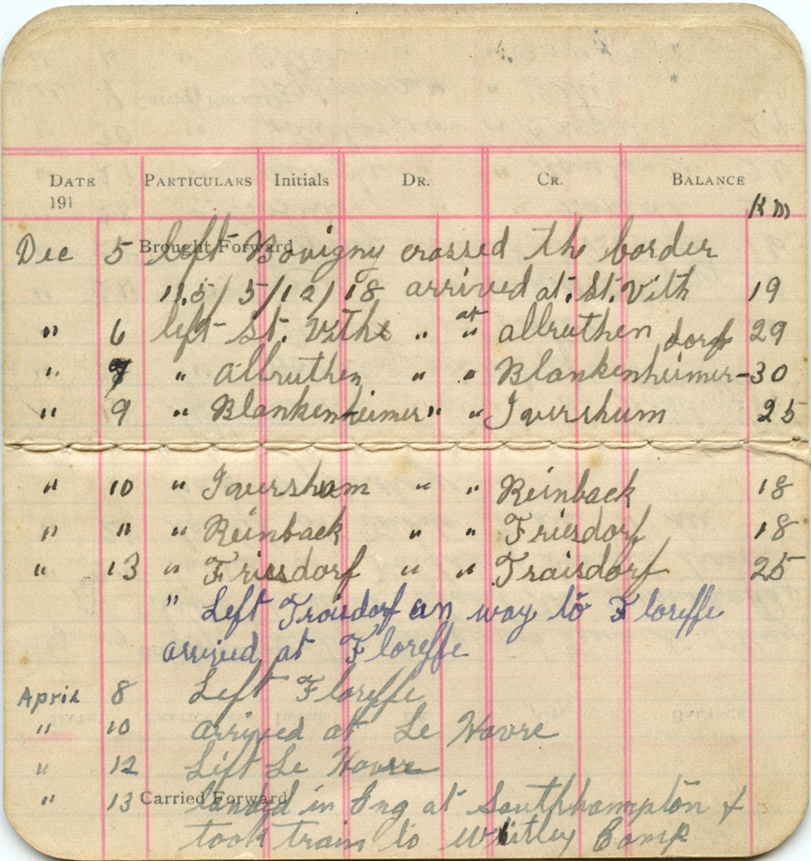 DATE PARTICULARS Initials DR. CR. BALANCE
191
KM
Dec 5 Brought Forward left Bovigny crossed the border
11.5/5/12/18 arrived at St. Vith 19
" 6 left St. Vith " at allruthen dorf 29
" 7 " allruthen " " Blankenheimer- 30
" 9 " Blankenheimer " " Ivershum 25
" 10 " Iversham " " Reinback 18
" " " Reinback " " Friesdorf 18
" 13 " Friesdorf " " Traisdorf 25
" Left Troisdorf on way to Floreffe
arrived at Floreffe
April 8 Left Floreffe
" 10 arrived at Le Havre
" 12 Left Le Havre
" 13 Carried Forward landed in Eng at Southhampton &
took train to Whitley Camp